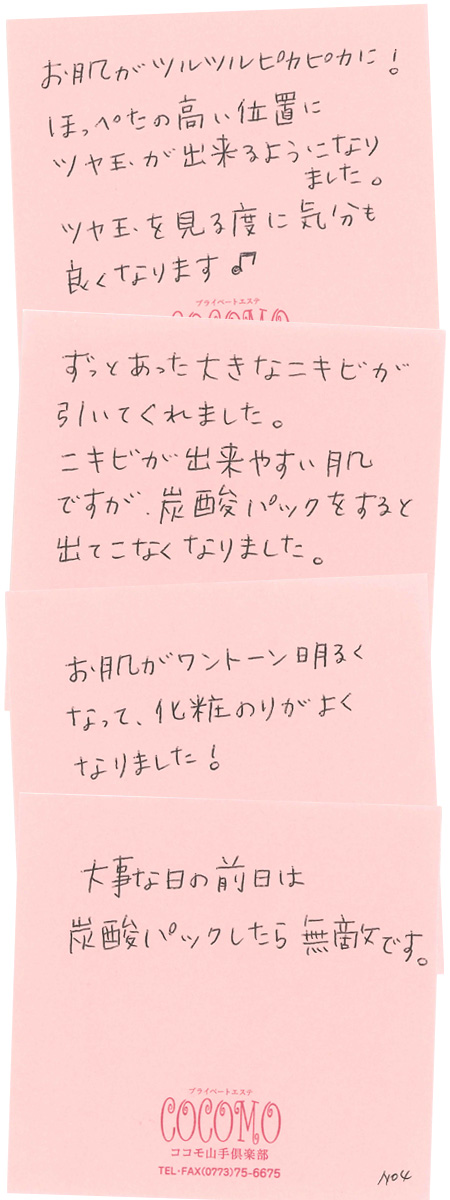 お肌がツルツルピカピカに!
ほっぺたの高い位置に
ツヤ玉が出来るようになり
ました。
ツヤ玉を見る度に気分も
良くなります♫
プライベートエステ
COCOMO
ずっとあった大きなニキビが
引いてくれました。
ニキビが出来やすい肌
ですが、炭酸パックをすると
出てこなくなりました。
お肌がワントーン明るく
なって、化粧のりがよく
なりました!
大事な日の前日は
炭酸パックしたら無敵です。
プライベートエステ
COCOMO
ココモ山手倶楽部
TEL・FAX(0773)75-6675
No4